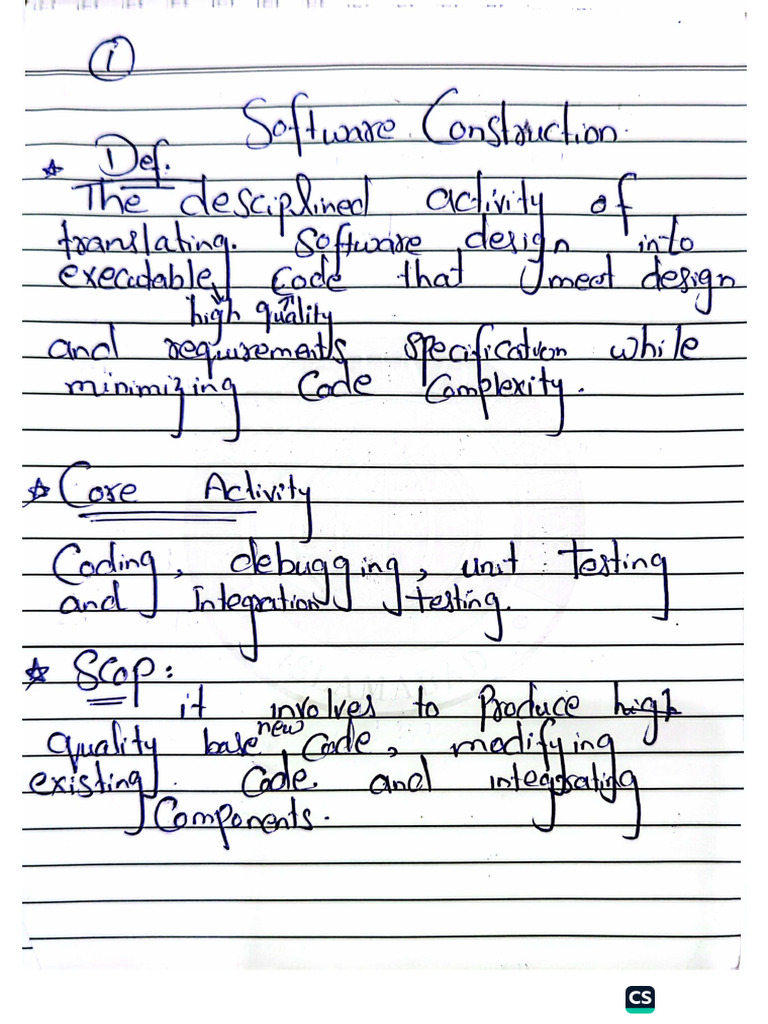 1
Software Construction.
* Def.
The desciplined activity of
translating. Software design into
executable, code that meet design
high quality
and requirements specification while
minimizing Code Complexity.
* Core Activity
Coding, debugging, unit Testing
and Integration testing.
* Scop:
it involves to Produce high
new
quality base Code, modifying
existing Code and integrating
Components.
CS